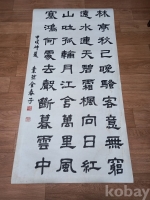 林亭秋已晚騷客意無窮
遠水連天碧霜楓向日紅
山吐孤輪月江含萬里風
塞鴻何處去聲斷暮雲中
kobay